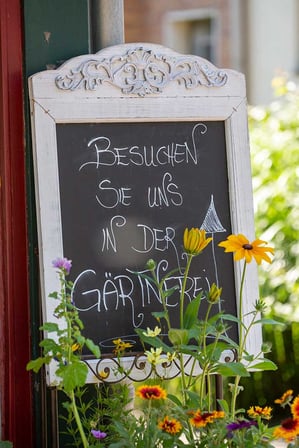 BESUCHEN
SIE UNS
IN DER
GÄRTNEREI